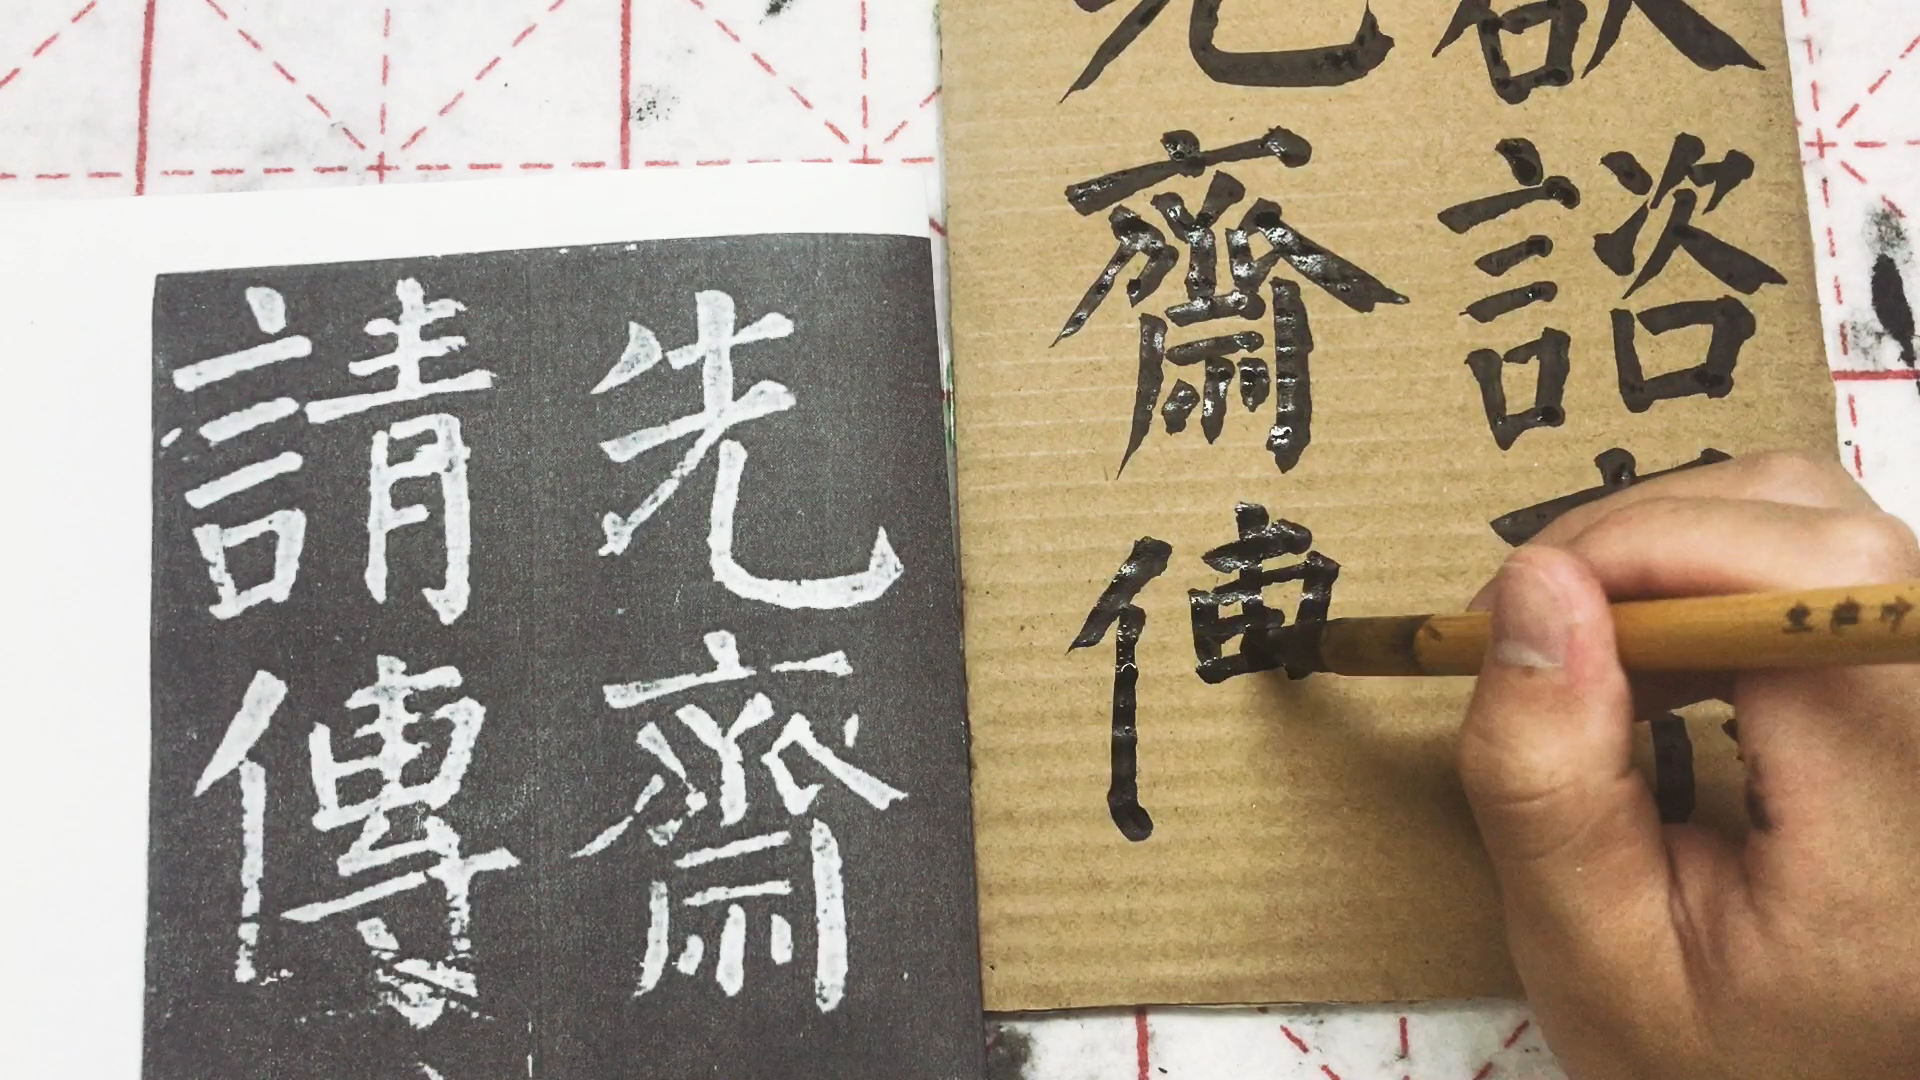 先齋
請傳
欲諮
先齋